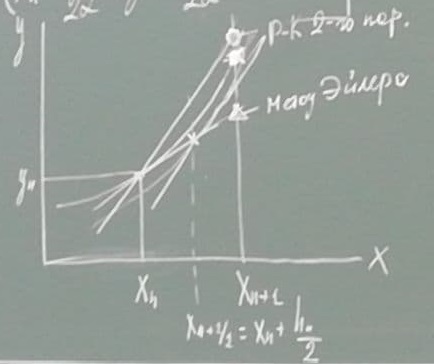 y
Р-К 2-го пор.
метод Эйлера
yₙ
X
Xₙ
Xₙ₊₁
Xₙ₊₁/₂ = Xₙ + hₙ/2